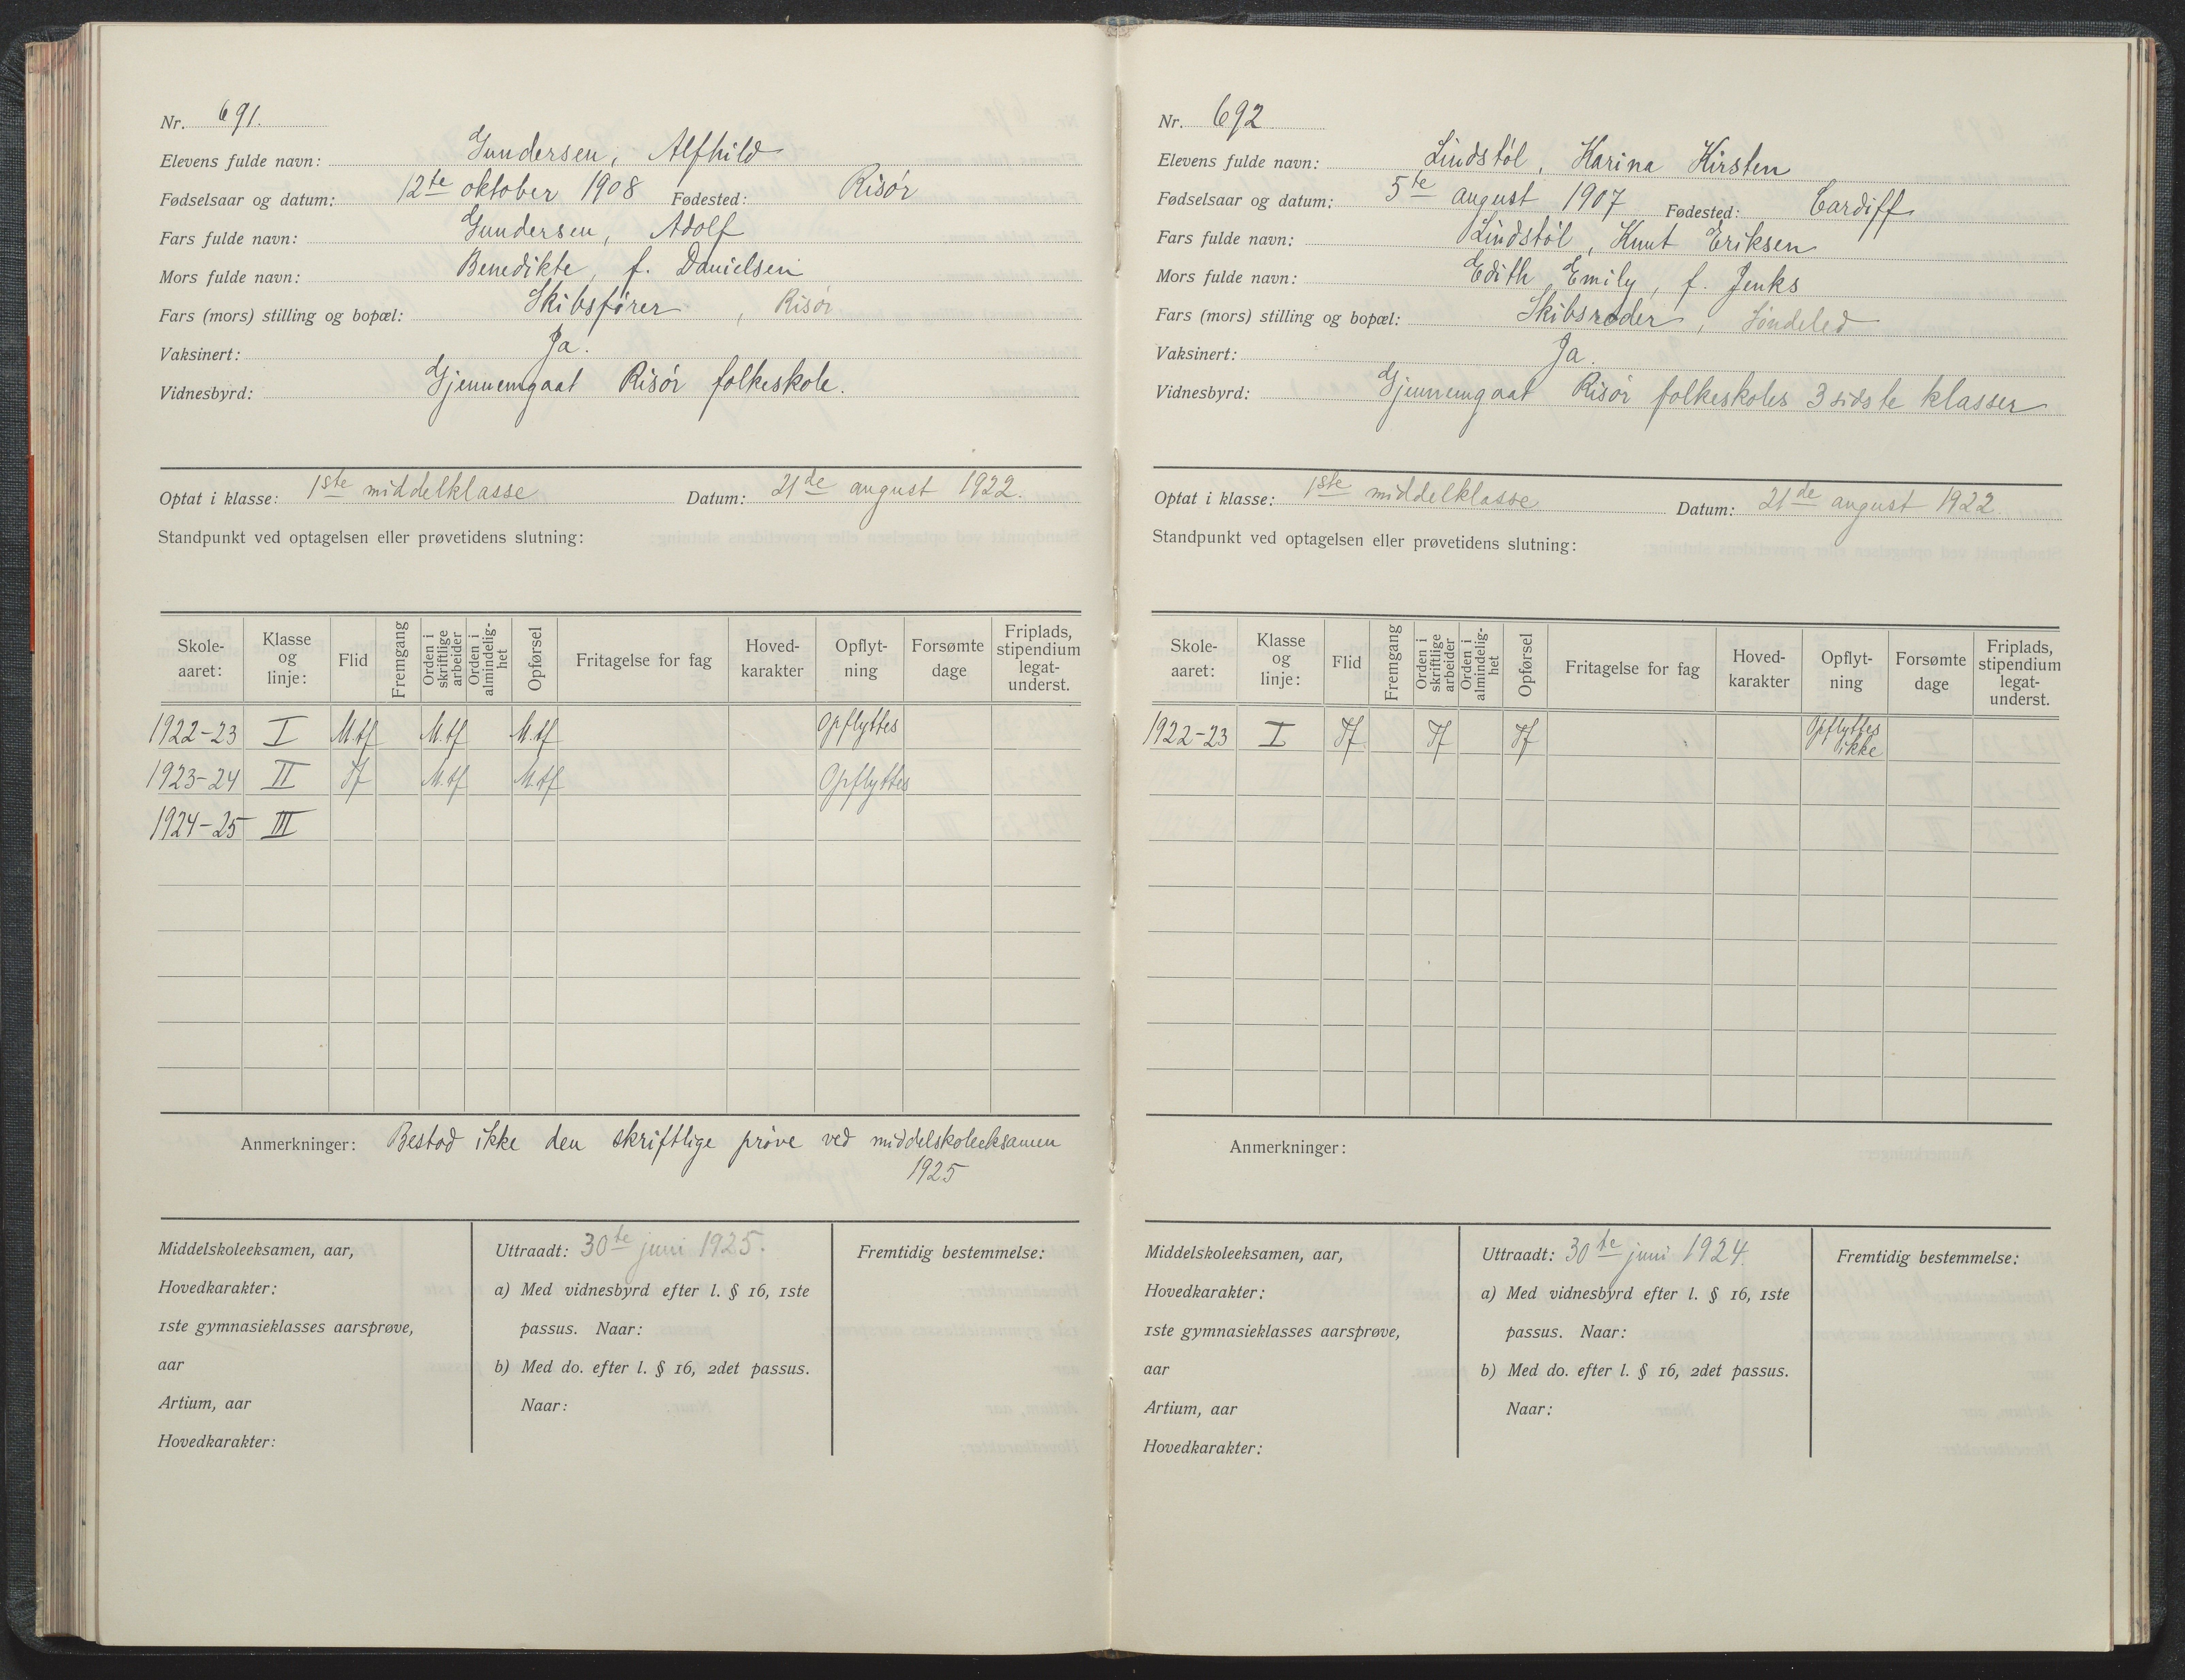 Nr. 691.
Elevens fulde navn: Gundersen, Alfhild
Fødselsaar og datum: 12te oktober 1908 Fødested: Risör
Fars fulde navn: Gundersen, Adolf
Mors fulde navn: Benedikte, f. Danielsen
Fars (mors) stilling og bopæl: Skibsfører, Risör
Vaksinert: Ja.
Vidnesbyrd: Gjennemgaat Risör folkeskole.
Optat i klasse: 1ste middelklasse Datum: 21de august 1922.
Standpunkt ved optagelsen eller prøvetidens slutning:
Skole-aaret: Klasse og linje: Flid Fremgang Orden i skriftlige arbeider Orden i almindelig-het Opførsel Fritagelse for fag Hoved-karakter Opflyt-ning Forsømte dage Friplads, stipendium legat-underst.
1922-23 I M.tf M.tf M.tf Opflyttes
1923-24 II Tf M.tf M.tf Opflyttes
1924-25 III
Anmerkninger: Bestod ikke den skriftlige pröve ved middelskoleeksamen
1925
Middelskoleeksamen, aar,
Hovedkarakter:
1ste gymnasieklasses aarsprøve,
aar
Artium, aar
Hovedkarakter:
Uttraadt: 30te juni 1925.
a) Med vidnesbyrd efter l. § 16, 1ste
passus. Naar:
b) Med do. efter l. § 16, 2det passus.
Naar:
Fremtidig bestemmelse:
Nr. 692
Elevens fulde navn: Lindstøl, Karina Kirsten
Fødselsaar og datum: 5te august 1907 Fødested: Cardiff
Fars fulde navn: Lindstøl, Knut Eriksen
Mors fulde navn: Edith Emily, f. Jenks
Fars (mors) stilling og bopæl: Skibsreder, Söndeled
Vaksinert: Ja.
Vidnesbyrd: Gjennemgaat Risör folkeskoles 3 sidste klasser
Optat i klasse: 1ste middelklasse Datum: 21de august 1922
Standpunkt ved optagelsen eller prøvetidens slutning:
Skole-aaret: Klasse og linje: Flid Fremgang Orden i skriftlige arbeider Orden i almindelig-het Opførsel Fritagelse for fag Hoved-karakter Opflyt-ning Forsømte dage Friplads, stipendium legat-underst.
1922-23 I Tf Tf Tf Opflyttes ikke
Anmerkninger:
Middelskoleeksamen, aar,
Hovedkarakter:
1ste gymnasieklasses aarsprøve,
aar
Artium, aar
Hovedkarakter:
Uttraadt: 30te juni 1924.
a) Med vidnesbyrd efter l. § 16, 1ste
passus. Naar:
b) Med do. efter l. § 16, 2det passus.
Naar:
Fremtidig bestemmelse: